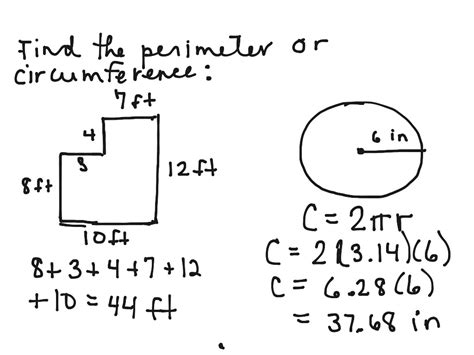 Find the perimeter or
circumference:
7 ft
4
3
8 ft
12 ft
10 ft
8 + 3 + 4 + 7 + 12
+ 10 = 44 ft
6 in
C = 2πr
C = 2(3.14)(6)
C = 6.28(6)
= 37.68 in